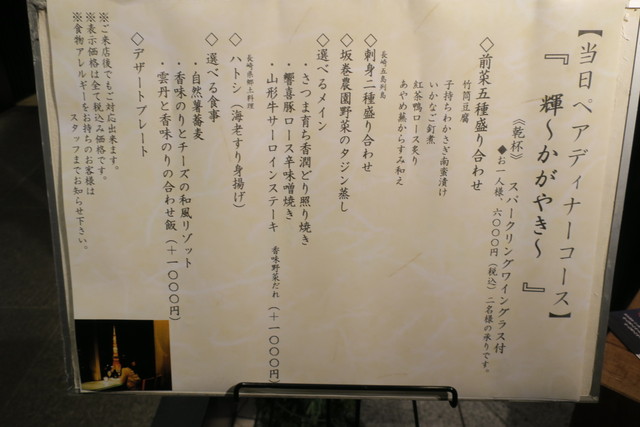 【当日ペアディナーコース】
『 輝～かがやき～ 』
《乾杯》 スパークリングワイングラス付
◆お一人様、六〇〇〇円（税込）二名様の承りです。
◇前菜五種盛り合わせ
竹筒豆腐
子持ちわかさぎ南蛮漬け
いかなご釘煮
紅茶鴨ロース炙り
あやめ蕪からすみ和え
長崎五島列島
◇刺身二種盛り合わせ
◇坂巻農園野菜のタジン蒸し
◇選べるメイン
・さつま育ち香潤どり照り焼き
・響喜豚ロース辛味噌焼き
・山形牛サーロインステーキ 香味野菜だれ（＋一〇〇〇円）
長崎県郷土料理
◇ハトシ（海老すり身揚げ）
◇選べる食事
・自然薯蕎麦
・香味のりとチーズの和風リゾット
・雲丹と香味のりの合わせ飯（＋一〇〇〇円）
◇デザートプレート
※ご来店後でもご対応出来ます。
※表示価格は全て税込み価格です。
※食物アレルギーをお持ちのお客様は
スタッフまでお知らせ下さい。